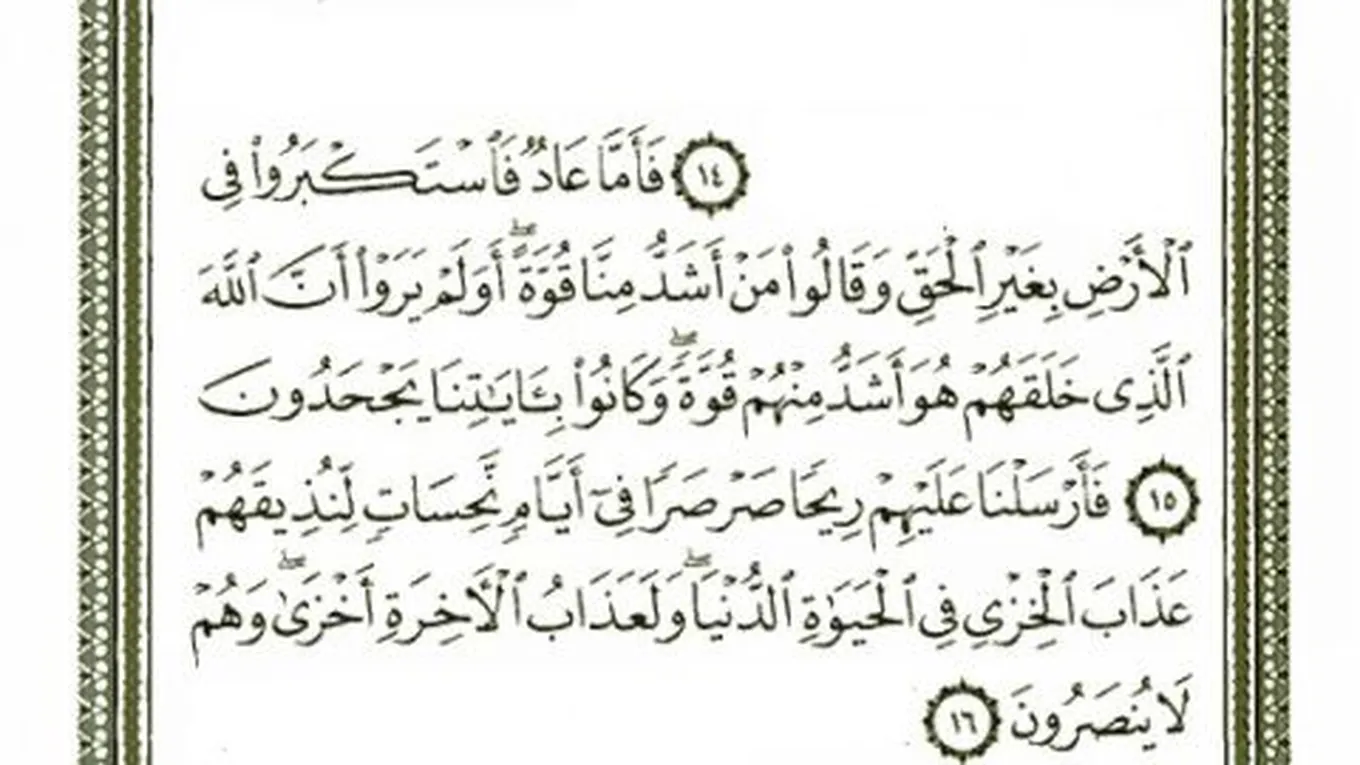 ١٤ فَأَمَّا عَادٌ فَٱسْتَكْبَرُوا۟ فِى
ٱلْأَرْضِ بِغَيْرِ ٱلْحَقِّ وَقَالُوا۟ مَنْ أَشَدُّ مِنَّا قُوَّةً ۖ أَوَلَمْ يَرَوْا۟ أَنَّ ٱللَّهَ
ٱلَّذِى خَلَقَهُمْ هُوَ أَشَدُّ مِنْهُمْ قُوَّةً ۖ وَكَانُوا۟ بِـَٔايَـٰتِنَا يَجْحَدُونَ
١٥ فَأَرْسَلْنَا عَلَيْهِمْ رِيحًا صَرْصَرًا فِىٓ أَيَّامٍ نَّحِسَاتٍ لِّنُذِيقَهُمْ
عَذَابَ ٱلْخِزْىِ فِى ٱلْحَيَوٰةِ ٱلدُّنْيَا ۖ وَلَعَذَابُ ٱلْـَٔاخِرَةِ أَخْزَىٰ ۖ وَهُمْ
لَا يُنصَرُونَ ١٦